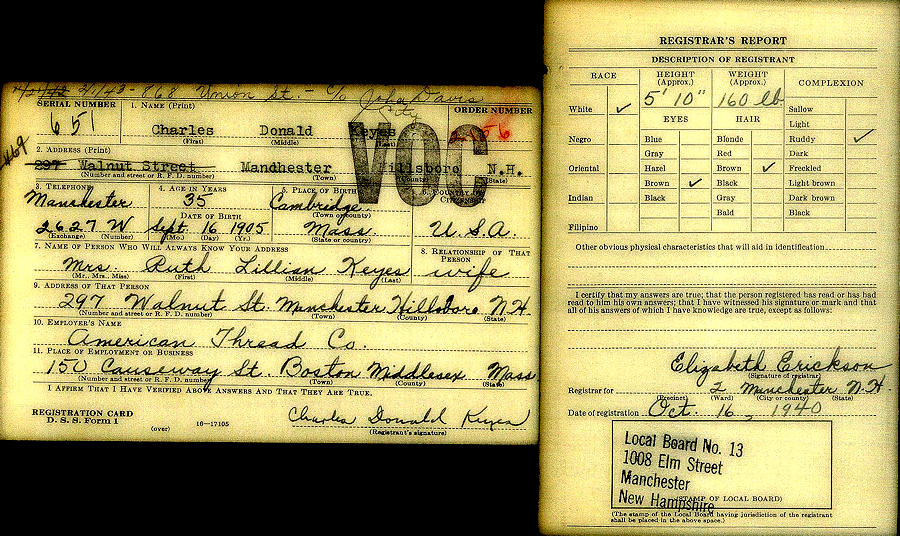 4/1/43 - 868 Union St. - c/o John Davis
City
SERIAL NUMBER
651
1. NAME (Print)
Charles Donald Keyes
(First) (Middle) (Last)
ORDER NUMBER
VOC
2. ADDRESS (Print)
297 Walnut Street Manchester Hillsboro N.H.
(Number and street or R. F. D. number) (Town) (County) (State)
3. TELEPHONE
Manchester
2627 W
(Exchange) (Number)
4. AGE IN YEARS
35
DATE OF BIRTH
Sept. 16 1905
(Mo.) (Day) (Yr.)
5. PLACE OF BIRTH
Cambridge
(Town or county)
Mass
(State or country)
6. COUNTRY OF CITIZENSHIP
U.S.A.
7. NAME OF PERSON WHO WILL ALWAYS KNOW YOUR ADDRESS
Mrs. Ruth Lillian Keyes
(Mr., Mrs., Miss) (First) (Middle) (Last)
8. RELATIONSHIP OF THAT PERSON
wife
9. ADDRESS OF THAT PERSON
297 Walnut St. Manchester Hillsboro N.H.
(Number and street or R. F. D. number) (Town) (County) (State)
10. EMPLOYER'S NAME
American Thread Co.
11. PLACE OF EMPLOYMENT OR BUSINESS
150 Causeway St. Boston Middlesex Mass
(Number and street or R. F. D. number) (Town) (County) (State)
I AFFIRM THAT I HAVE VERIFIED ABOVE ANSWERS AND THAT THEY ARE TRUE.
REGISTRATION CARD
D. S. S. Form 1
(over)
16—17105
Charles Donald Keyes
(Registrant's signature)
REGISTRAR'S REPORT
DESCRIPTION OF REGISTRANT
RACE
White ✓
Negro
Oriental
Indian
Filipino
HEIGHT
(Approx.)
5' 10"
WEIGHT
(Approx.)
160 lb.
EYES
Blue
Gray
Hazel
Brown ✓
Black
HAIR
Blonde
Red
Brown ✓
Black
Gray
Bald
COMPLEXION
Sallow
Light
Ruddy ✓
Dark
Freckled
Light brown
Dark brown
Black
Other obvious physical characteristics that will aid in identification
I certify that my answers are true; that the person registered has read or has had
read to him his own answers; that I have witnessed his signature or mark and that
all of his answers of which I have knowledge are true, except as follows:
Elizabeth Erickson
(Signature of registrar)
Registrar for 2 Manchester N.H.
(Precinct) (Ward) (City or county) (State)
Date of registration Oct. 16, 1940
Local Board No. 13
1008 Elm Street
Manchester
New Hampshire
(STAMP OF LOCAL BOARD)
(The stamp of the Local Board having jurisdiction of the registrant
shall be placed in the above space.)